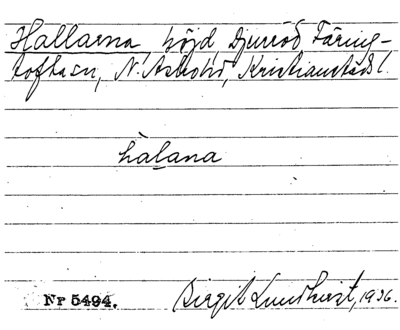 Hallarna, höjd, Djurröd, Färing-
toftasn, N. Åsbohd, Kristianstads l.
hàlana
Nr 5494. Birgit Lundqvist, 1936.